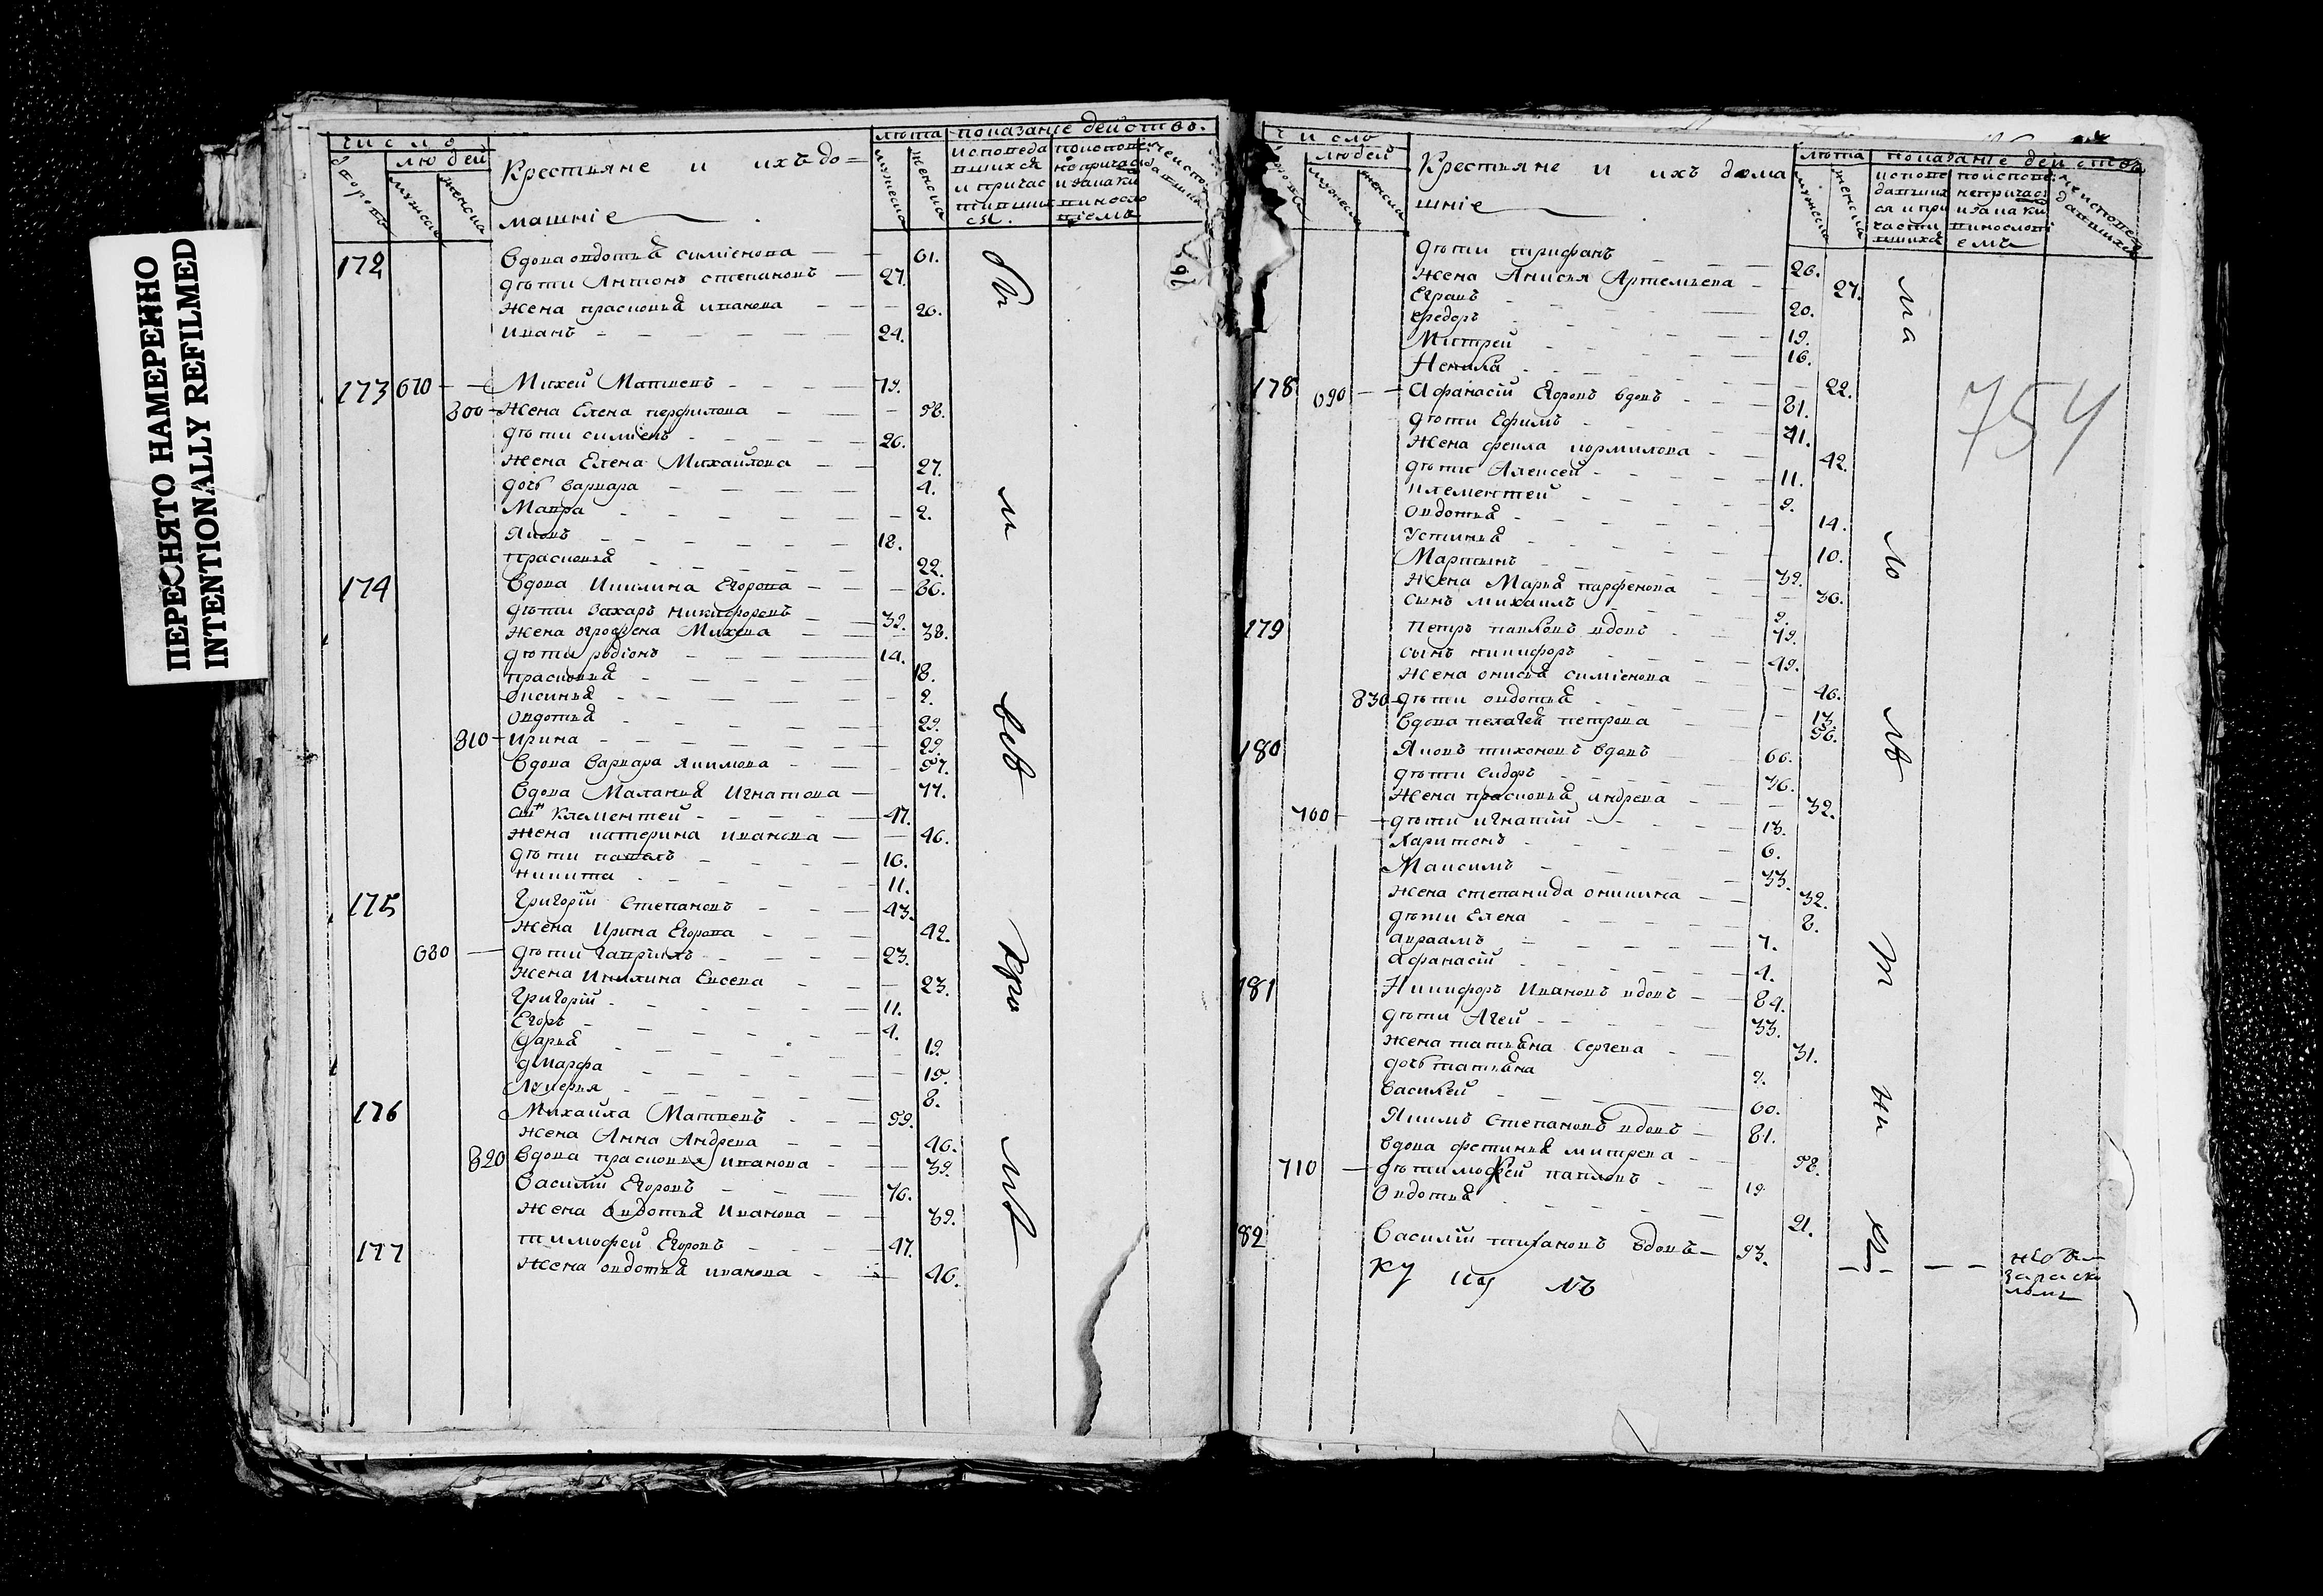 ПЕРЕСНЯТО НАМЕРЕННО
INTENTIONALLY REFILMED
число
дворовъ
людей
мужеска
женска
Крестьяне и ихъ до=
машніе
лѣта
мужеска
женска
показаніе действъ.
исповеда
вшихся
и причас
тивших
ся.
172 Вдова овдотья симіенова — 61.
дѣти Антонъ степановъ — 27.
жена прасковья иванова — 26.
иванъ — 24.
173 670 Михей Матвеевъ — 79.
800 жена Елена перфилова — 58.
дѣти симіенъ — 26.
жена Елена Михайлова — 27.
дочь варвара — 4.
Мавра — 2.
Яковъ — 18.
прасковья — 22.
174 Вдова Акилина Егорова — 66.
дѣти Захаръ никифоровъ — 39.
жена огрофена Михева — 38.
дѣти родіонъ — 14.
прасковья — 18.
Оксинья — 2.
Овдотья — 29.
810 ирина — 29.
Вдова Варвара Якимова — 57.
Вдова Маланья Игнатова — 77.
сын Клементей — 47.
жена катерина иванова — 46.
дѣти павелъ — 16.
никита — 11.
175 Григорій Степановъ — 43.
жена Ирина Егорова — 42.
680 дѣти гаврилъ — 23.
жена Акилина Евсева — 23.
Григорій — 11.
Егоръ — 4.
дарья — 19.
Марфа — 15.
Лукерья — 8.
176 Михаила Матвеевъ — 59.
жена Анна Андрева — 46.
820 Вдова прасковья иванова — 39.
Василій Егоровъ — 36.
жена Овдотья Иванова — 39.
177 тимофей Егоровъ — 47.
жена овдотья иванова — 46.
число
людей
мужеска
женска
Крестьяне и ихъ дома
шніе
лѣта
мужеска
женска
показаніе действъ
754
дѣти трифанъ — 26.
жена Анисья Артемьева — 27.
Еграпъ — 20.
федоръ — 19.
Митрей — 16.
Ненила — 22.
178 690 Афанасій Егоровъ вдовъ — 81.
дѣти Ефимъ — 41.
жена фекла кормилова — 42.
дѣти Алексей — 11.
клементей — 9.
овдотья — 14.
Устинья — 10.
Мартынъ — 39.
жена Марья парфенова — 36.
сынъ михаилъ — 2.
179 Петръ павловъ вдовъ — 79.
сынъ никифоръ — 49.
жена онисья симіенова — 46.
830 дѣти овдотья — 13.
Вдова пелагея петрова — 56.
180 Яковъ тихоновъ вдовъ — 66.
дѣти Сидоръ — 36.
жена прасковья андрева — 32.
700 дѣти игнатій — 13.
Харитонъ — 6.
Максимъ — 33.
жена степанида оникина — 32.
дѣти Елена — 8.
авраамъ — 7.
афанасій — 4.
181 Никифоръ Ивановъ вдовъ — 84.
дѣти Агей — 33.
жена татьяна Сергева — 31.
дочь татьяна — 9.
Василей — 60.
Якимъ Степановъ вдовъ — 81.
вдова фетинья митрева — 58.
710 дѣти мокей павловъ — 19
Овдотья — 21.
82 Василій тихановъ вдовъ — 93.